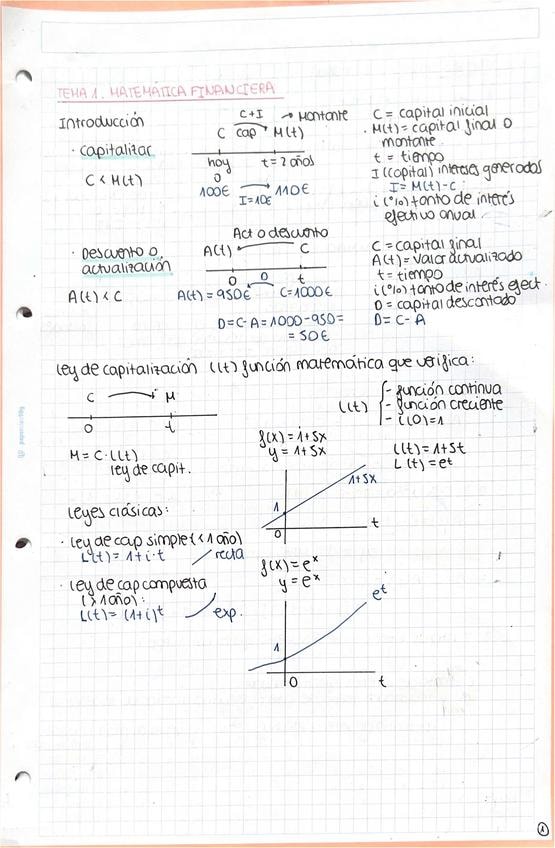 TEMA 1. MATEMÁTICA FINANCIERA
Introducción
· capitalizar
C < M(t)
C+I → Montante
C cap M(t)
hoy t=2 años
0
100€ → 110€
I=10€
C = capital inicial
M(t) = capital final o
montante
t = tiempo
I (capital) intereses generados
I = M(t)-C
i (%) tanto de interés
efectivo anual
· Descuento o
actualización
A(t) < C
Act o descuento
A(t) ← C
0 D t
A(t) = 950€ C=1000€
D=C-A=1000-950=
= 50€
C = capital final
A(t) = valor actualizado
t = tiempo
i (%) tanto de interés efect.
D = capital descontado
D = C-A
Ley de capitalización L(t) función matemática que verifica:
C → M
0 t
M = C·L(t)
ley de capit.
L(t) { - función continua
- función creciente
- L(0)=1
f(x) = 1+5x
y = 1+5x
L(t) = 1+5t
L(t) = et
1+5x
1
0
t
Leyes clásicas:
· ley de cap simple (<1 año)
L(t) = 1+i·t recta
· ley de cap compuesta
(>1 año):
L(t) = (1+i)t exp.
f(x) = eˣ
y = eˣ
eᵗ
1
0 t
1